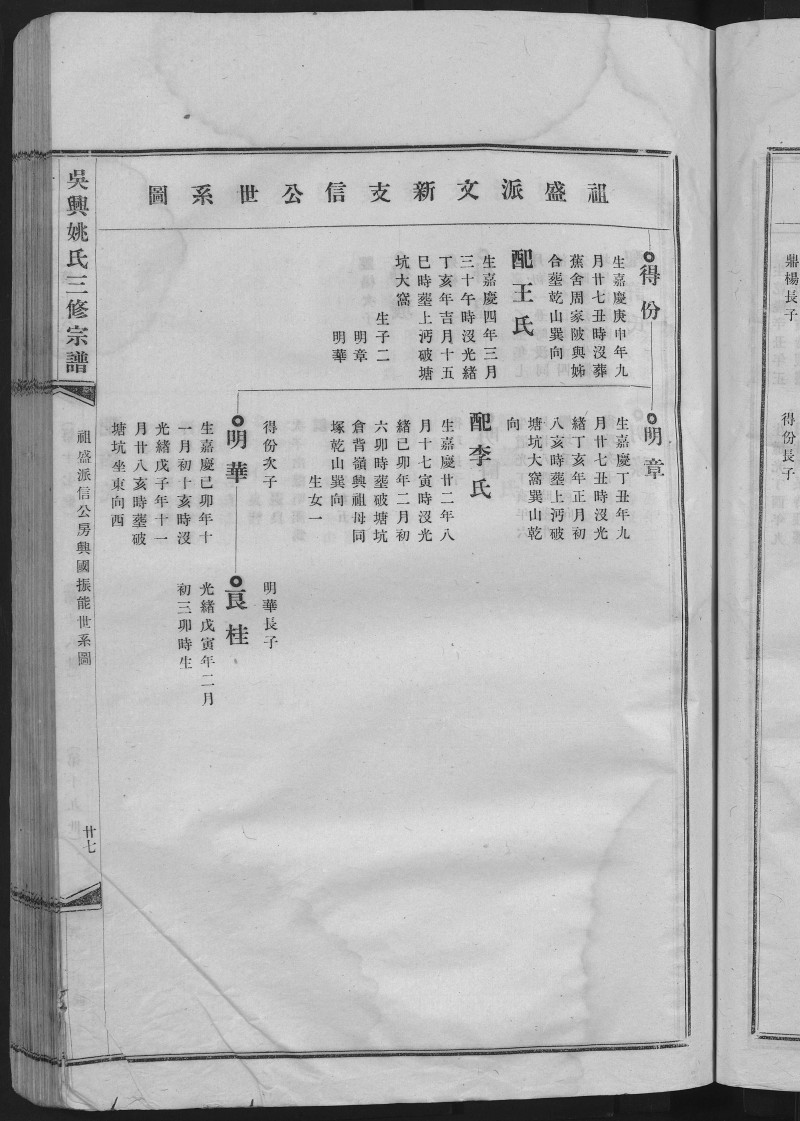 鼎楊長子
得份長子
祖盛派文新支信公世系圖
得份
生嘉慶庚申年九
月廿七丑時沒葬
蕉舍周家陂與姊
合塟乾山巽向
配王氏
生嘉慶四年三月
三十午時沒光緒
丁亥年吉月十五
巳時塟上沔破塘
坑大窩
生子二
明章
明華
明章
生嘉慶丁丑年九
月廿七丑時沒光
緒丁亥年正月初
八亥時塟上沔破
塘坑大窩巽山乾
向
配李氏
生嘉慶廿二年八
月十七寅時沒光
緒己卯年二月初
六卯時塟破塘坑
倉背嶺興祖母同
塚乾山巽向
生女一
得份次子
明華
生嘉慶己卯年十
一月初十亥時沒
光緒戊子年十一
月廿八亥時塟破
塘坑坐東向西
明華長子
良桂
光緒戊寅年二月
初三卯時生
吳興姚氏三修宗譜
祖盛派信公房興國振能世系圖
廿七